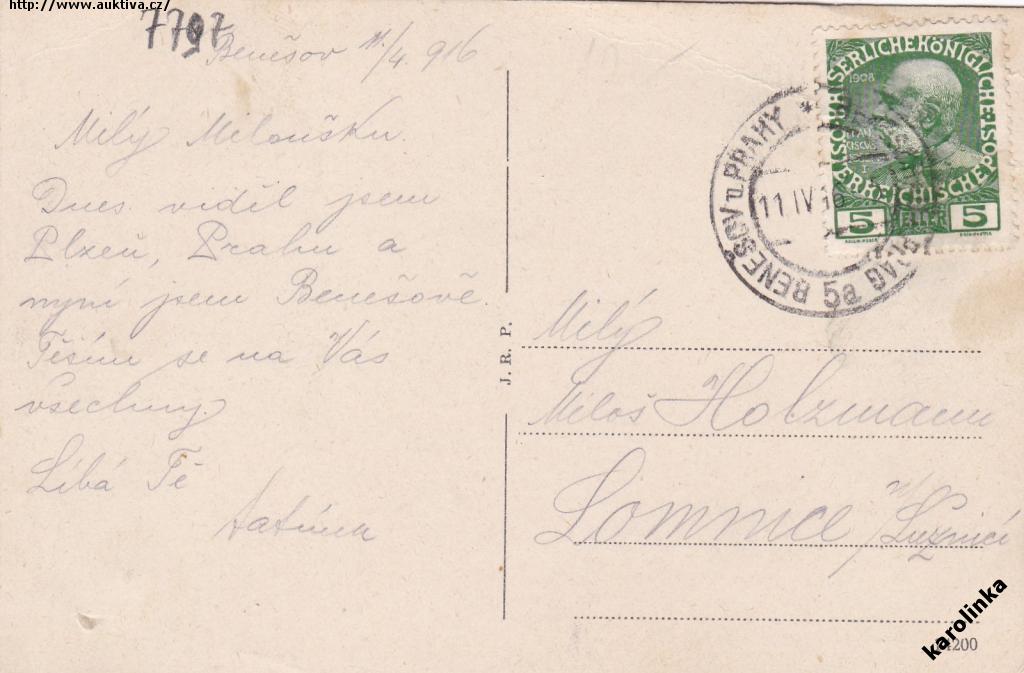 http://www.auktiva.cz/
7797
Benešov 11./4. 916
Milý Miloušku.
Dnes viděl jsem
Plzeň, Prahu a
nyní jsem Benešově.
Těším se na Vás
všechny.
Líbá Tě
tatínek
J. R. P.
KAISERLICHEKÖNIGLICHE
1908
5 HELLER 5
BENEŠOV u PRAHY
11 IV 16
5a
Milý
Miloš Holzmann
Lomnice n/Lužnicí
4200
karolinka